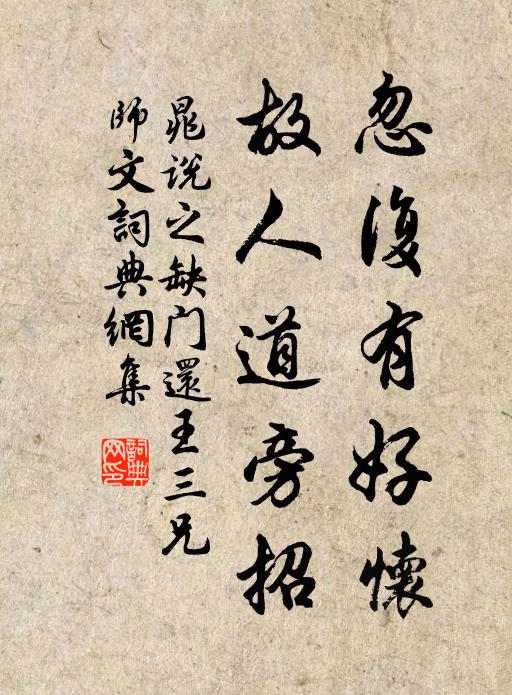 忽復有好懷
故人道旁招
晁說之缺門還王三兄
師文詞典網集
詞典網印